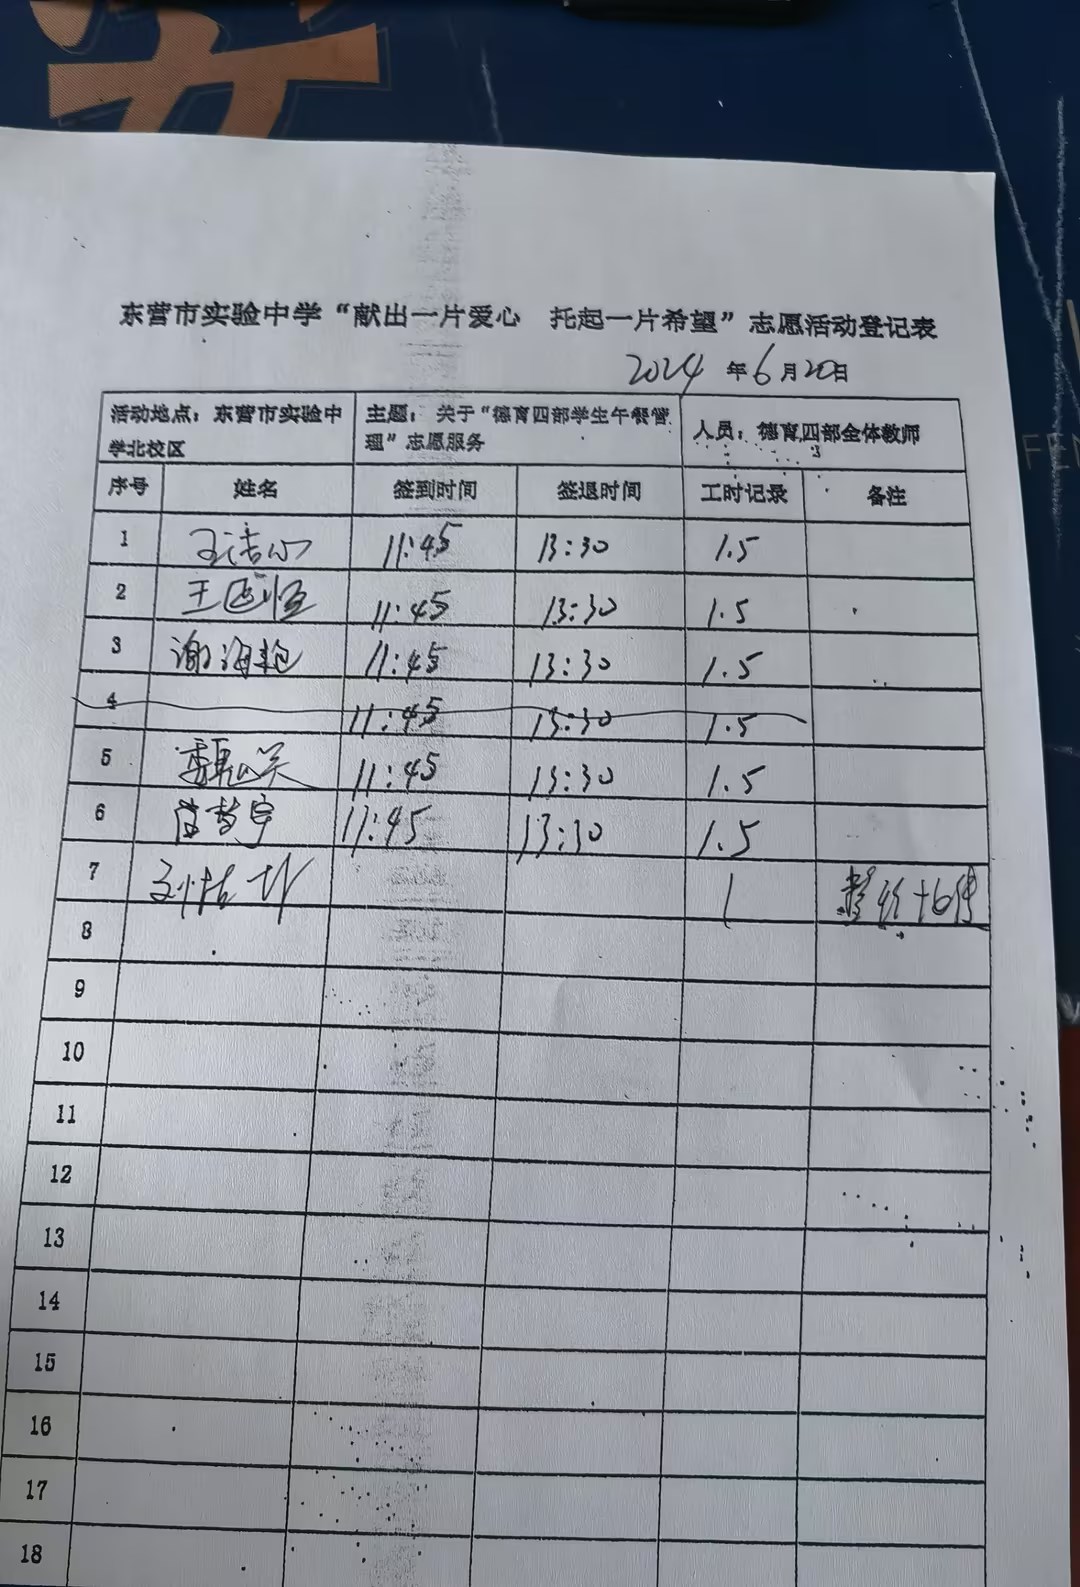 东营市实验中学“献出一片爱心 托起一片希望”志愿活动登记表
2024年6月20日
活动地点：东营市实验中学北校区 主题：关于“德育四部学生午餐管理”志愿服务 人员：德育四部全体教师
序号 姓名 签到时间 签退时间 工时记录 备注
1 11:45 13:30 1.5
2 王 11:45 13:30 1.5
3 谢海艳 11:45 13:30 1.5
4 11:45 13:30 1.5
5 11:45 13:30 1.5
6 11:45 13:30 1.5
7 1
8
9
10
11
12
13
14
15
16
17
18